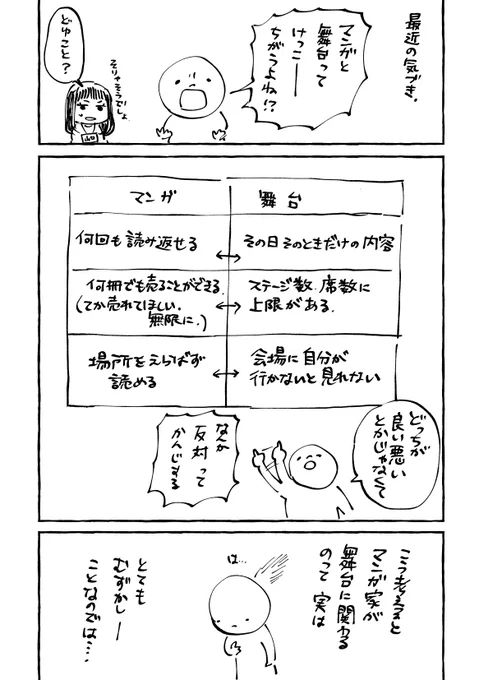 最近の気づき。
マンガと
舞台って
けっこー
ちがうよね!?
そりゃそうでしょ
どゆこと?
マンガ
舞台
何回も読み返せる
その日そのときだけの内容
何冊でも売ることができる。
(てか売れてほしい。
無限に。)
ステージ数、席数に
上限がある。
場所をえらばず
読める
会場に自分が
行かないと見れない
どっちが
良い悪い
とかじゃなくて
なんか
反対って
かんじする
こう考えると
マンガ家が
舞台に関わる
のって実は
は…
とても
むずかしー
ことなのでは…